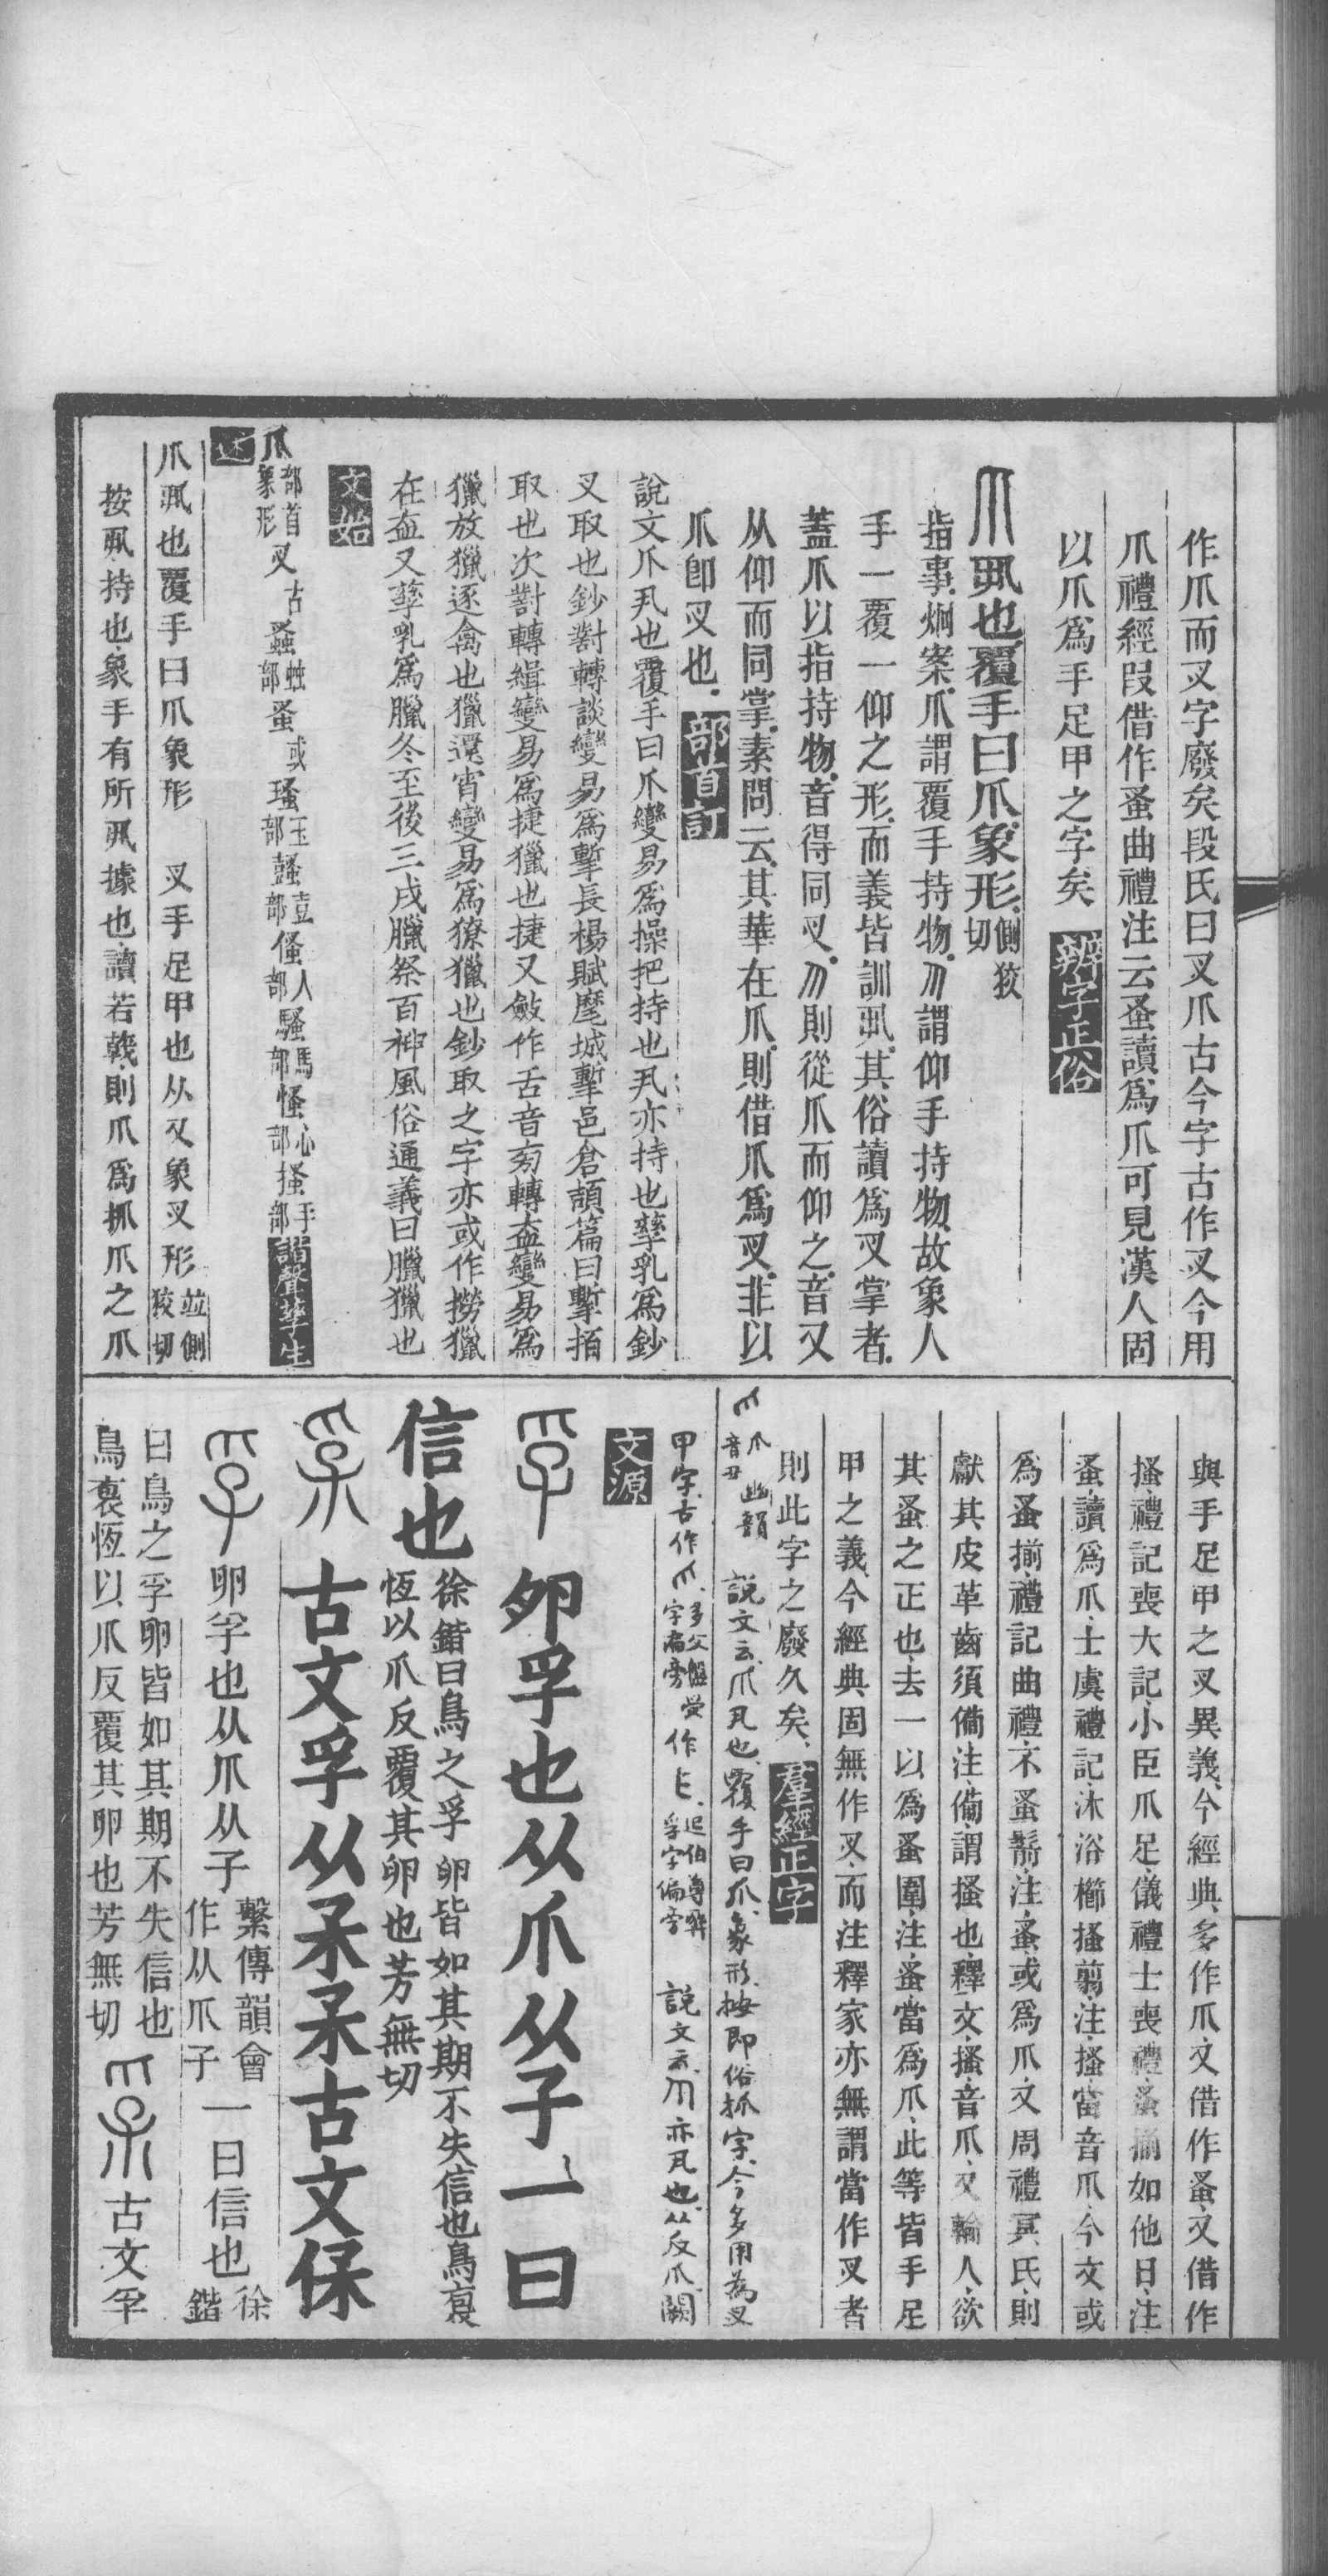 作爪而叉字廢矣段氏曰叉爪古今字古作叉今用
爪禮經叚借作蚤曲禮注云蚤讀爲爪可見漢人固
以爪爲手足甲之字矣 辨字正俗
爪 丮也覆手曰爪象形 側狡切
指事烱案爪謂覆手持物爪謂仰手持物故象人
手一覆一仰之形而義皆訓丮其俗讀爲叉掌者
蓋爪以指持物音得同叉爪則從爪而仰之音又
从仰而同掌素問云其華在爪則借爪爲叉非以
爪卽叉也 部首訂
說文爪丮也覆手曰爪變易爲操把持也丮亦持也孳乳爲鈔
叉取也鈔對轉談變易爲摲長楊賦麾城摲邑倉頡篇曰摲拍
取也次對轉緝變易爲捷獵也捷又斂作舌音旁轉盇變易爲
獵放獵逐禽也獵還宵變易爲獠獵也鈔取之字亦或作撈獵
在盇又孳乳爲臘冬至後三戌臘祭百神風俗通義曰臘獵也
文始
爪 部首象形 叉 古 蝨 䖵部 蚤 或 瑤 玉部 䖣 壴部 傜 人部 騷 馬部 慅 心部 搔 手部 諧聲孳生
述
爪丮也覆手曰爪象形 叉手足甲也从又象叉形 並側狡切
按丮持也象手有所丮據也讀若戟則爪爲抓爪之爪
與手足甲之叉異義今經典多作爪又借作蚤又借作
搔禮記喪大記小臣爪足儀禮士喪禮蚤揃如他日注
蚤讀爲爪士虞禮記沐浴櫛搔翦注搔當音爪今文或
爲蚤揃禮記曲禮不蚤鬋注蚤或爲爪又周禮冥氏則
獻其皮革齒須備注備謂搔也釋文搔音爪又輪人欲
其蚤之正也去一以爲蚤圍注蚤當爲爪此等皆手足
甲之義今經典固無作叉而注釋家亦無謂當作叉者
則此字之廢久矣 羣經正字
爪 爪 幽韻 音丑 說文云爪丮也覆手曰爪象形按卽俗抓字今多用爲叉
甲字古作 多父盤受字偏旁 作 伯尊 孚字偏旁 說文云爪亦丮也从反爪闕
文源
孚 卵孚也从爪从子一曰
信也 徐鍇曰鳥之孚卵皆如其期不失信也鳥裒
恆以爪反覆其卵也芳無切
古文孚从𤓽𤓽古文保
孚 卵孚也从爪从子 繫傳韻會作从爪子 一曰信也 徐鍇
曰鳥之孚卵皆如其期不失信也
鳥裒恆以爪反覆其卵也芳無切 古文孚